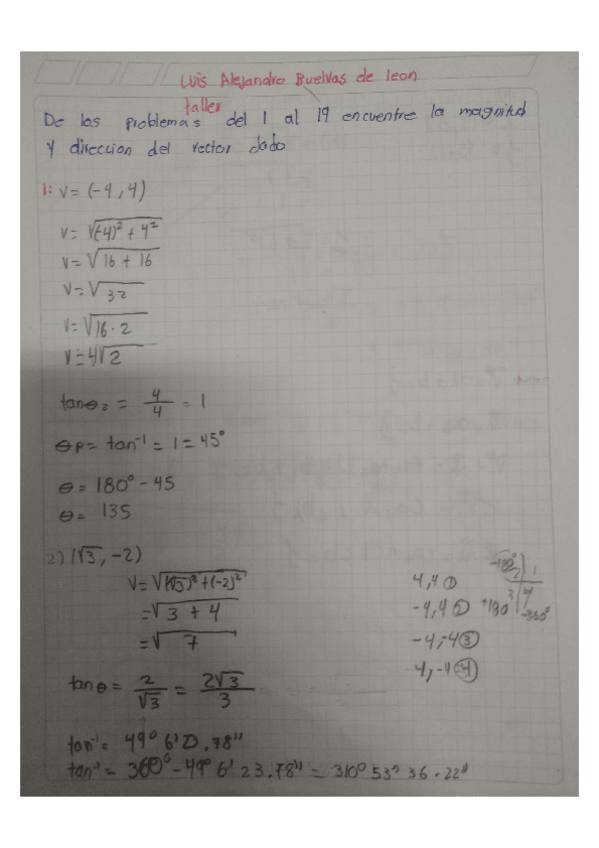 Luis Alejandro Buelvas de leon
taller
De los problemas del 1 al 19 encuentre la magnitud
y direccion del vector dado
1: v= (-4,4)
v= √(-4)² + 4²
v= √16 + 16
v= √32
v= √16·2
v= 4√2
tanθ2 = 4/4 = 1
θR = tan⁻¹ = 1 = 45°
θ = 180° - 45
θ = 135
2) (√3, -2)
V= √(√3)² + (-2)²
= √3 + 4
= √7
4,4 1
-4,4 2
-4,-4 3
4,-4 4
-180°
2 1
3 4
+180 -360°
tanθ = 2/√3 = 2√3/3
tan⁻¹ = 49° 6' .78''
tan⁻¹ = 360° - 49° 6' 23.78'' = 310° 53' 36.22''